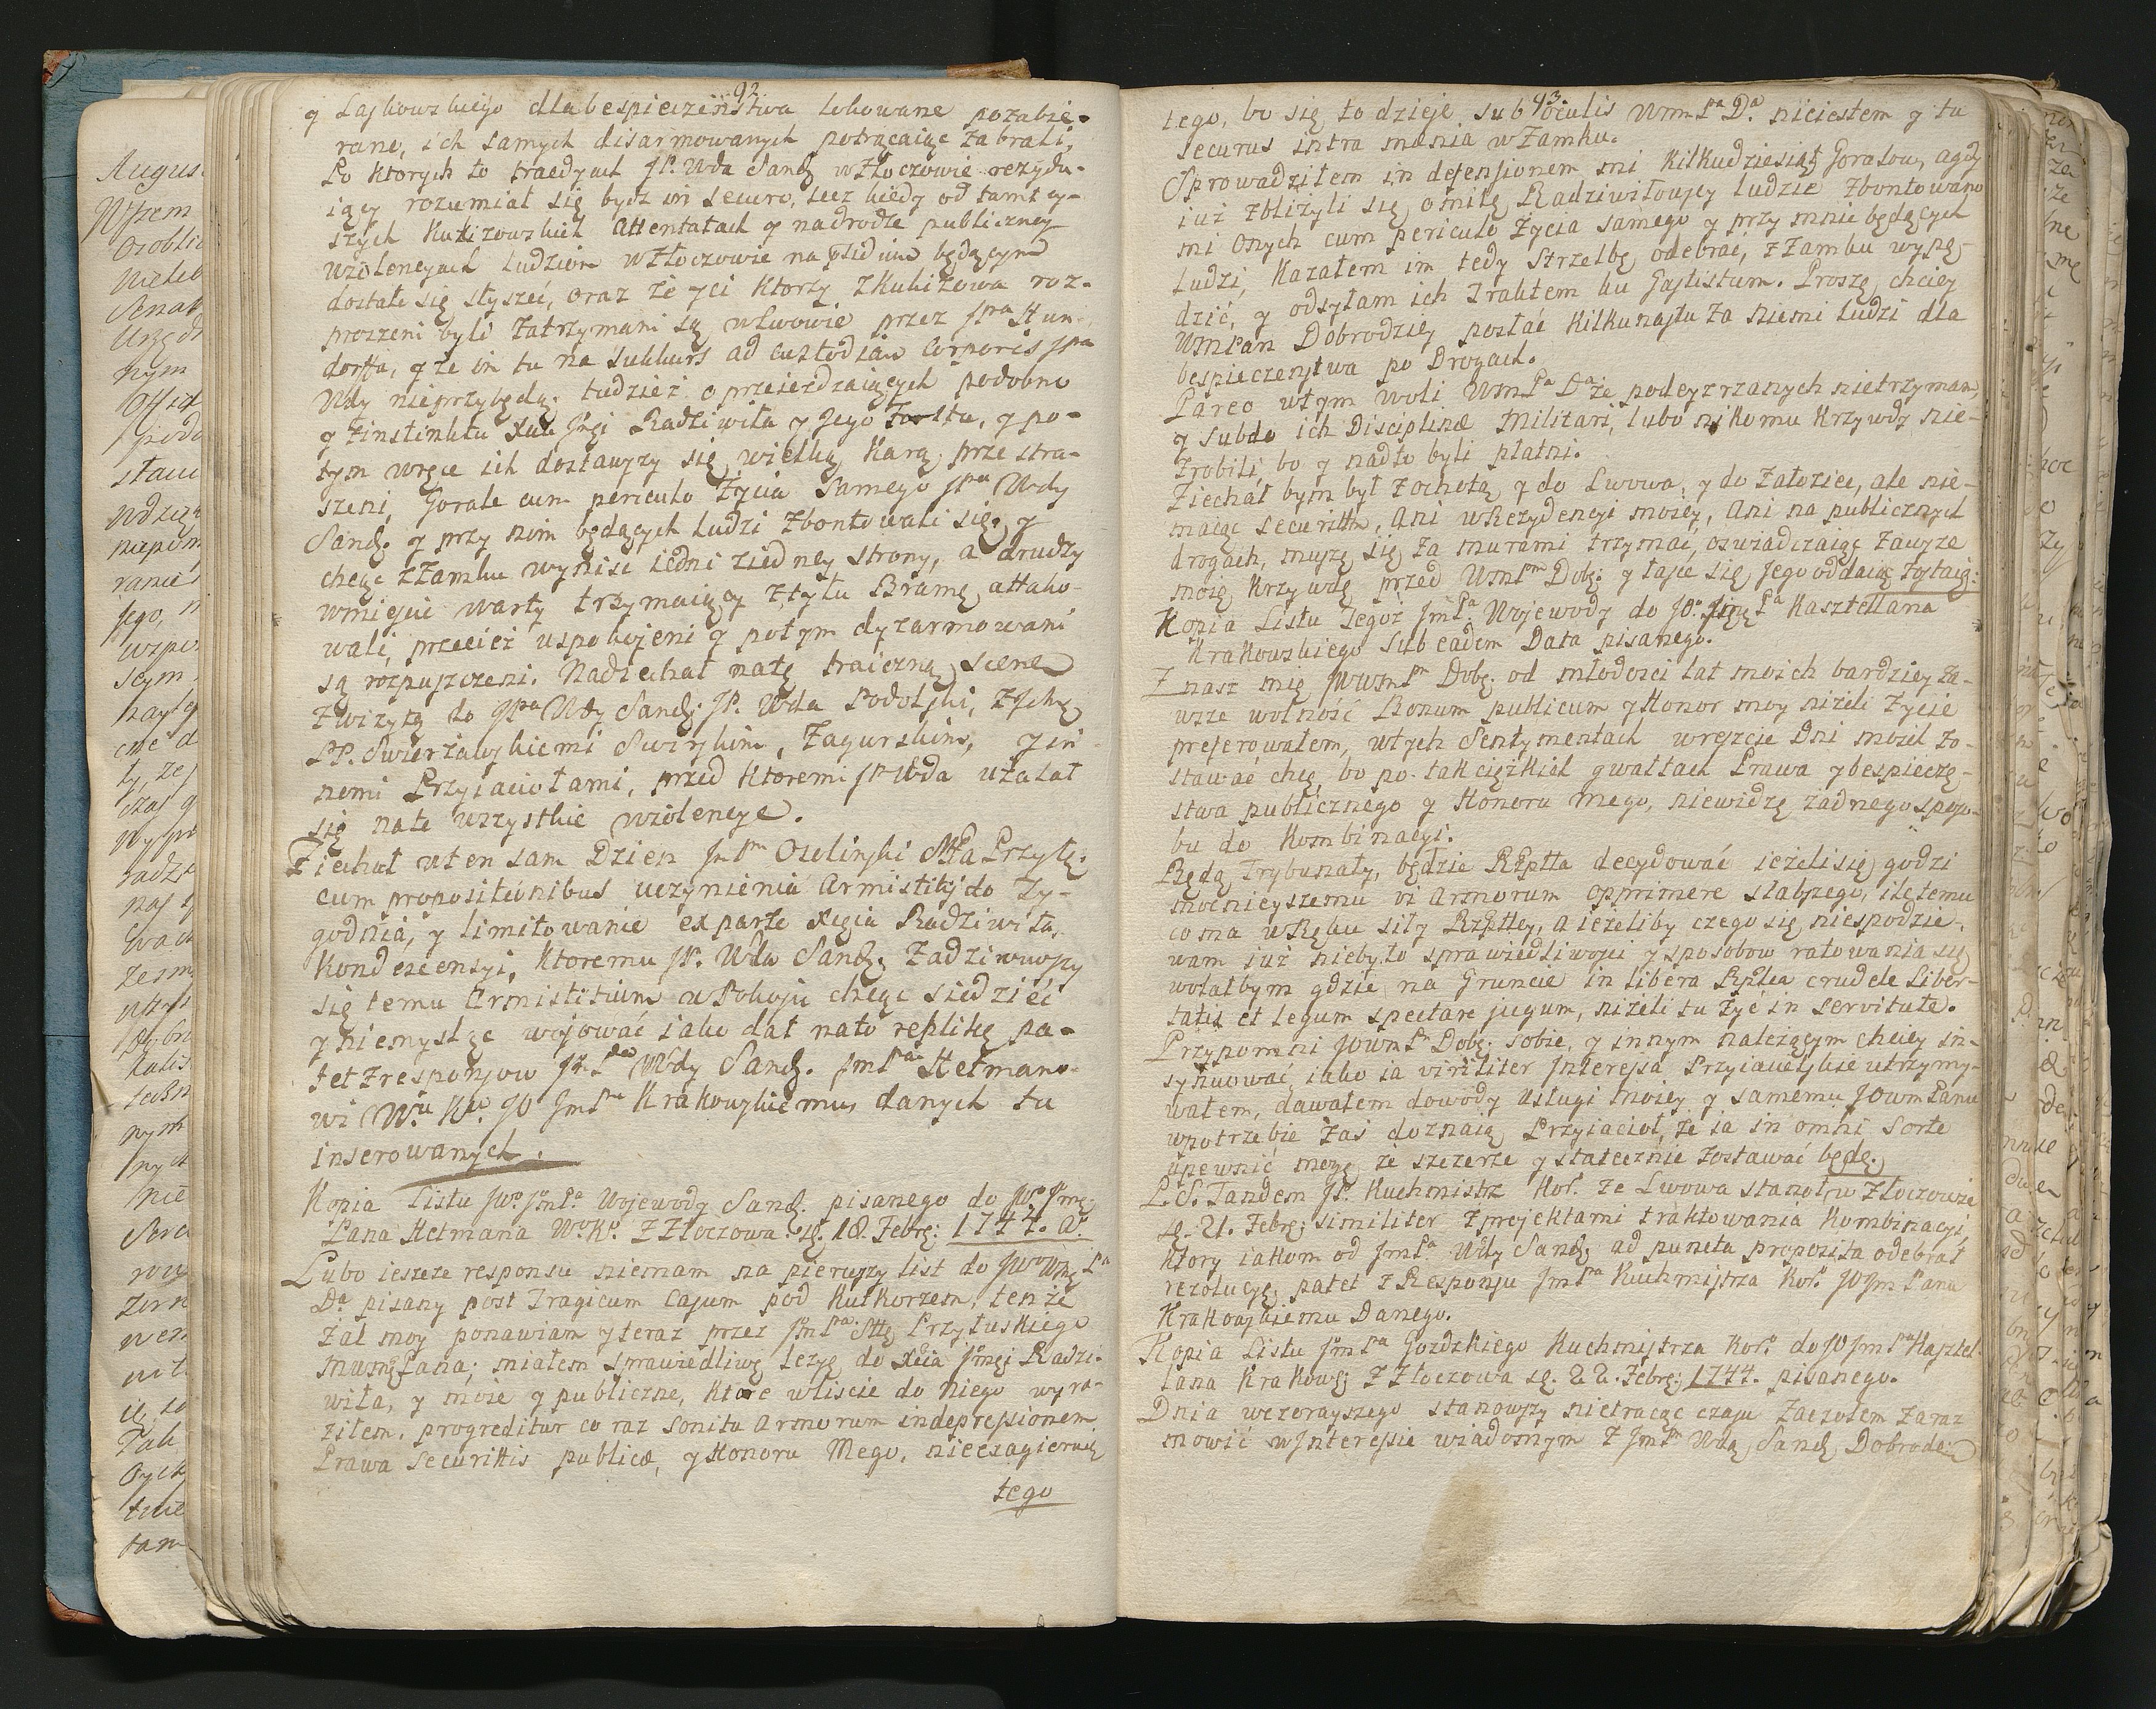 92.
y Laskowskiego dla bespieczeństwa lokowane pozabie-
rane, ich samych disarmowanych potrącaiąc zabrali,
Po ktorych to traedyach JP. Wda Sand: w Złoczowie rezydu-
iący rozumiał się bydz in securo, lecz kiedy od tamtey-
szych Kukizowskich attentatach y na drodze publiczney
wiolencyach ludziom w Złoczowie na pridium będącym
dostało się słyszeć, oraz że y ci ktorzy z Kukizowa roz-
proszeni byli zatrzymani są w Lwowie przez JPa Stun-
dorffa, y że im tu na sukkurs ad custodiam Corporis JPa
Wdy nieprzybędą; tudzież o przeieżdzaiących podobno
y z instinktu Xcia Jmci Radziwiła y Jego , y po-
tym wręce ich dostawszy się wielką karą, prze stra-
szeni, Gorale cum periculo życia samego JPa Wdy
Sand: y przy nim będących ludzi zbontowali się, y
chcąc z Zamku wyniść iedni ziedney strony, a drudzy
wmieyscu warty trzymaiący z tyłu Bramę attako-
wali, przecież uspokojeni y potym dyzarmowani
są rozpuszczeni. Nadiechał na tę traiczną scenę
z wizytą do JPa Wdy Sand: JP. Wda Podolski, z Jchmć
PP. Swierzawskiemi Swirskim, Zagurskim, y in-
nemi Przyiaciołami, przed ktoremi JP Wda użalał
się na te wszystkie wiolencye.
Ziechał w ten sam Dzien JmPn Osolinski Stta Przyłę.
cum propositionibus uczynienia Armistitij do Ty-
godnia, y limitowanie ex parte Xcia Radziwiła,
Kondescensyi, Ktoremu JP. Wda Sand: Zadziwiwszy
się temu Armistitium w Pokoju chcąc siedzieć
y niemyśląc wojować iako dał na to replikę pa-
tet z responsow JPa Wdy Sand. JmPa Hetmano-
wi W: K: JO JmPa Krakowskiemu danych tu
inserowanych.
Kopia Listu JWo JmPa Wojewody Sand: pisanego do JWo Jmć
Pana Hetmana Wo Ko z Złoczowa d. 18. Febr: 1744. Ao.
Lubo ieszcze responsu niemam na pierwszy list do JWWmć Pa
Da pisany post Tragicum Casum pod Kutkorzem, tenże
żal moy ponawiam y teraz przez JmPa Sttę Przyłuskiego
Pana; miałem sprawiedliwą lezyą do Xcia Jmci Radzi-
wiła, y moie y publiczne, ktore w liscie do niego wyra-
ziłem, progreditur co raz sonitu armorum in depressionem
Prawa Securittis publicæ, y Honoru Mego, nieexagieruię
tego
93
tego, bo się to dzieje sub oculis Wm Pa Da. niciestem y tu
securus intra mænia w Zamku.
Sprowadziłem in defensionem mi kilkudziesiąt Goralow, a gdy
iuż zbliżyli się o milę Radziwiłowscy ludzie zbontowano
mi onych cum periculo życia samego y przy mnie będących
ludzi, kazałem im tedy Strzelbę odebrać, z Zamku wypę-
dzić, y odsyłam ich Traktem ku Gaytistum. Proszę, chciey
WmPan Dobrodziey posłać kilkunastu za niemi ludzi dla
bespieczenstwa po Drogach.
Pareo w tym woli WmPa Da że podeyzrzanych nietrzymam,
y subdo ich Disciplinæ Militari, lubo nikomu krzywdy nie-
zrobili, bo y nadto byli płatni.
Ziechał bym był z ochotą y do Lwowa, y do Załoziec, ale nie-
maiąc securittm, ani w Rezydencyi moiey, ani na publicznych
drogach, muszę się za murami trzymać, oświadczaiąc zawsze
moię krzywdę przed WmPm Dobr: y łasce się Jego oddaię zostaię:
Kopia Listu tegoż JmPa Wojewody do JO. Jmć Pa Kasztellana
Krakowskiego sub eadem Data pisanego.
Znasz mię JWWmPn Dobr: od młodości lat moich bardziey za-
wsze wolność Bonum publicum y Honor moy niżeli życie
preferowałem, w tych sentymentach w reszcie Dni moich zo-
stawać chcę, bo po tak ciężkich gwałtach Prawa y bespieczę-
stwa publicznego y Honoru mego, niewidzę żadnego sposo-
bu do Kombinacyi.
Będą Trybunały, będzie Rzptta decydować ieżeli się godzi
mocnieyszemu vi armorum opprimere słabszego, ile temu
co ma w Ręku siły Rzptttey, a ieżeliby czego się niespodzie-
wam iuż nie było sprawiedliwosci y sposobow ratowania się
wolałbym gdzie na Gruncie in libera Rptca crudele Liber-
tatis et legum spectare jugum, niżeli tu żyć in servitute.
Przypomni JOWmPn Dobr: sobie, y innym należącym chciey in-
synuować, iako ia viriliter Interessa Przyiacielskie utrzymy-
wałem, dawałem dowody usługi moiey y samemu JOWm Panu
w potrzebie zaś doznaią Przyiacioł, że ia in omni sorte
upewnić mogę, że szczerze y statecznie zostawać będę.
L.S. Tandem JP. Kuchmistrz Kor. ze Lwowa stanoł w Złoczowie
d. 21. Febr: similiter z projektami traktowania Kombinacyi,
ktory iakom od JmPa Wdy Sand: ad puncta proposita odebrał
rezolucyę, patet z Responsu JmPa Kuchmistrza Koro JOJm Panu
Krakowskiemu Danego.
Kopia Listu JmPa Gozdzkiego Kuchmistrza Koro do JO JmPa Kasztel-
lana Krakows: z Złoczowa d. 22. Febr: 1744. pisanego.
Dnia wczorayszego stanowszy nietracąc czasu zaczołem zaraz
mowić w Interessie wiadomym z JmPn Wdą Sand: Dobrode: